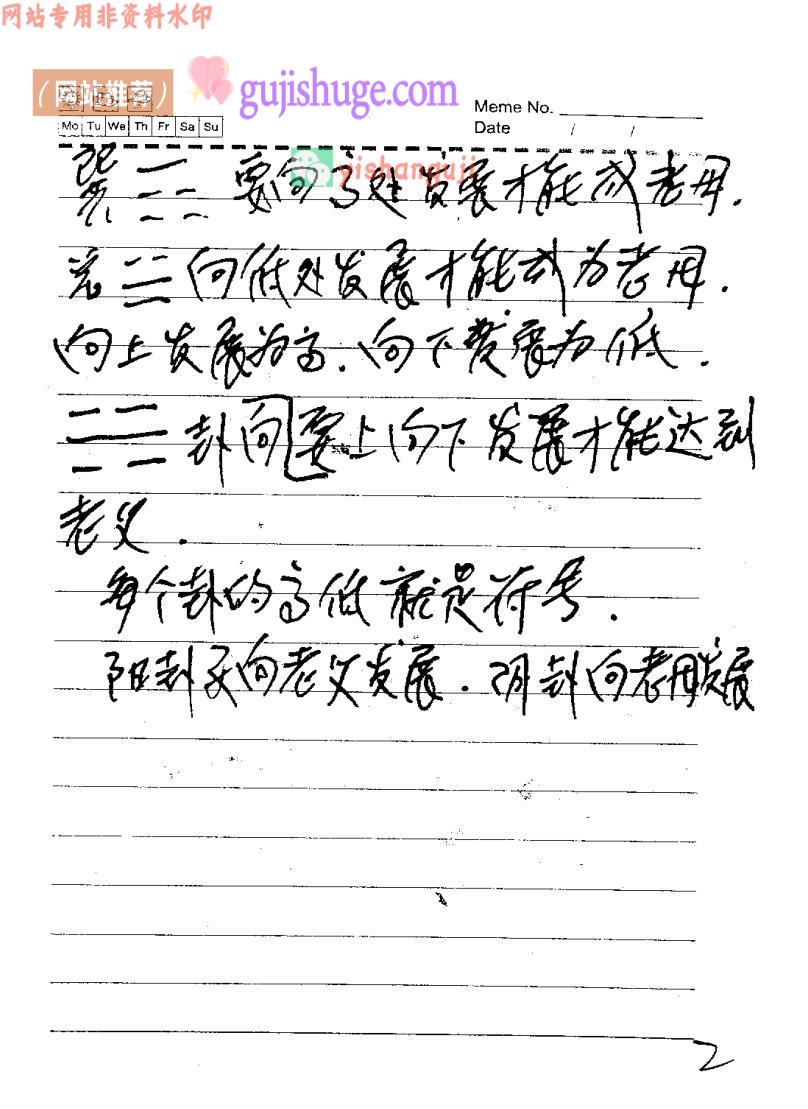 网站专用非资料水印
(网站推荐)
gujishuge.com
Meme No.
Mo Tu We Th Fr Sa Su
Date / /
yishanguji
巽 ☴ 要向高处发展才能成老母.
兑 ☱ 向低处发展才能成为老母.
向上发展为高.向下发展为低.
卦向要上向下发展才能达到
老父.
每个卦的高低就是符号.
阳卦又向老父发展.阴卦向老母发展
2